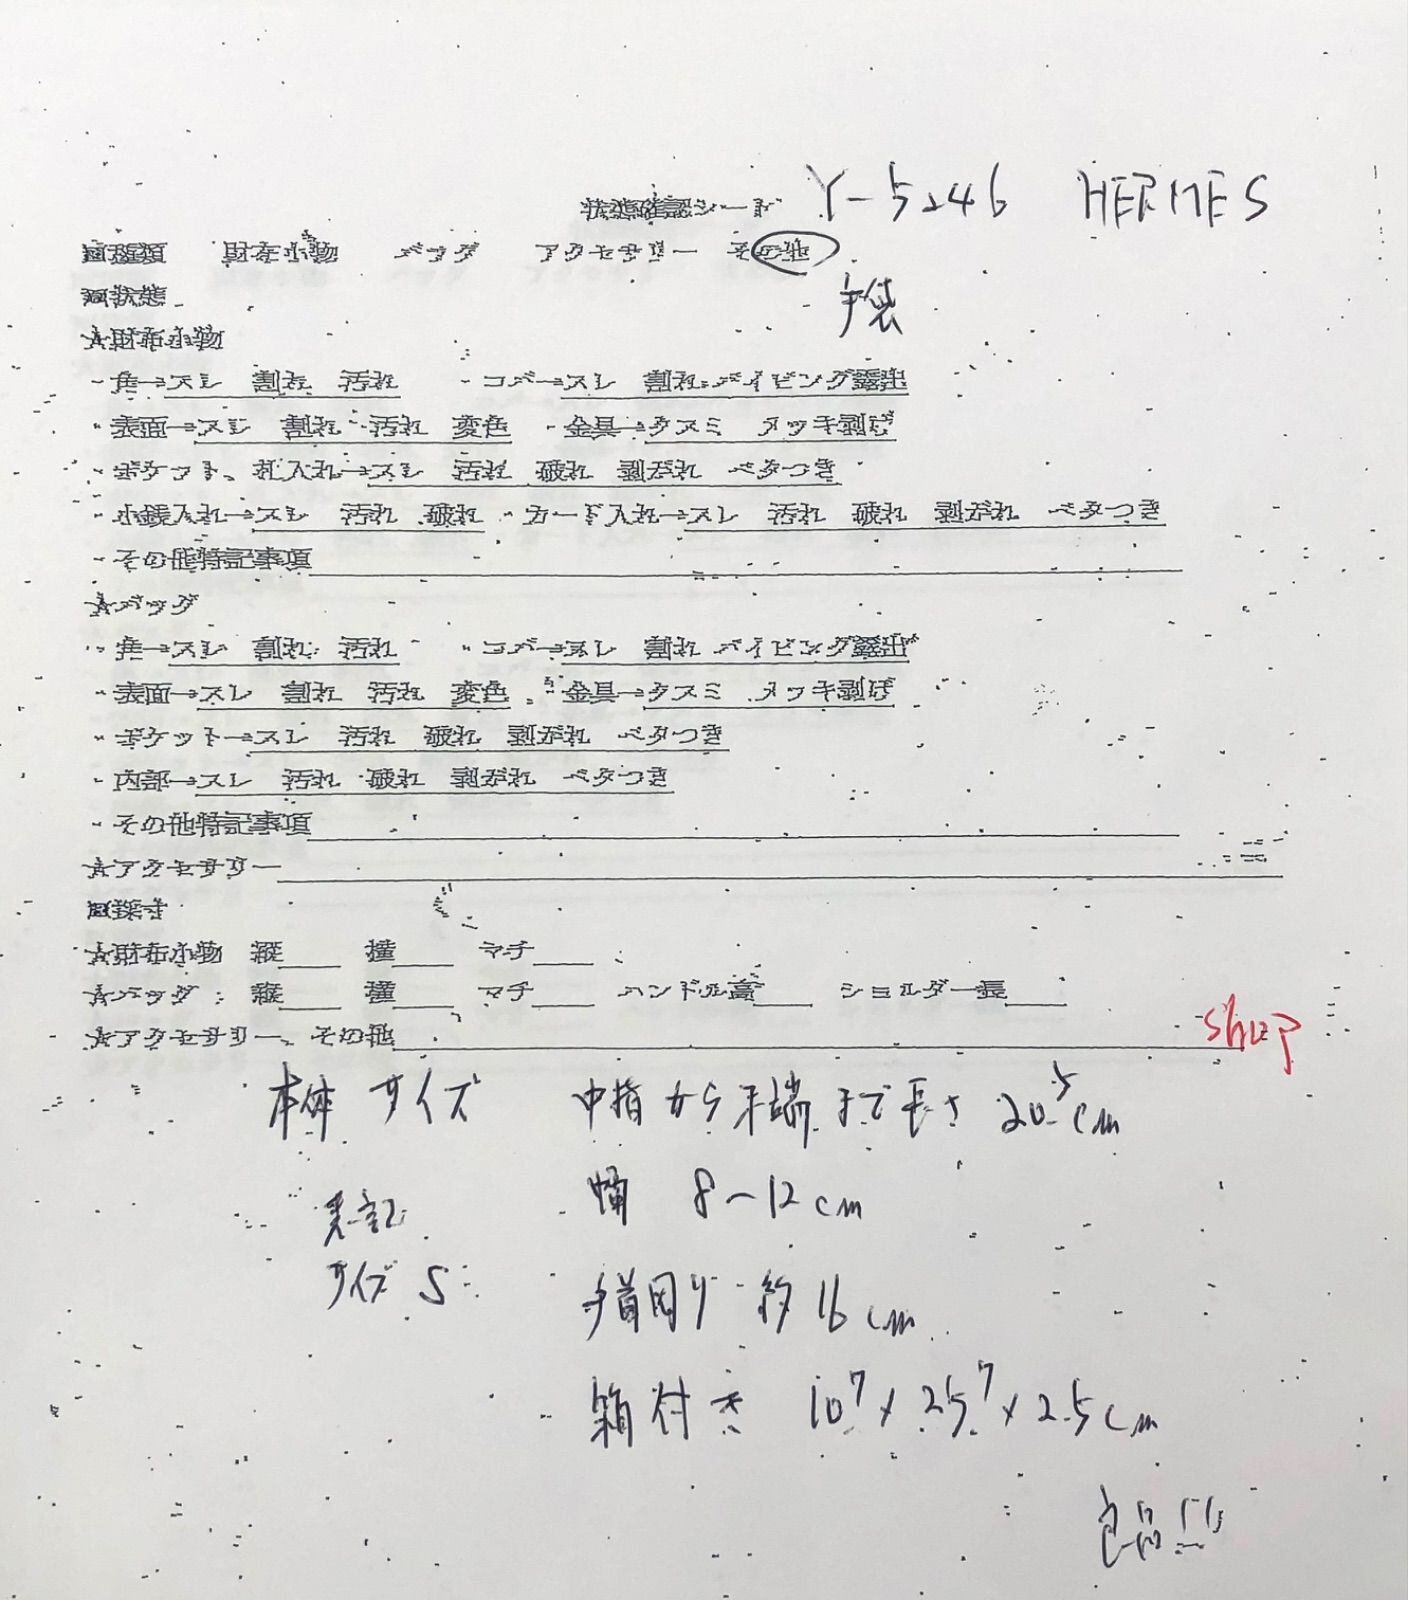 状態確認シート Y-5246 HERMES
□種類 財布小物 バッグ アクセサリー その他
手袋
□状態
☆財布小物
・角→スレ 割れ 汚れ ・コバ→スレ 割れ パイピング露出
・表面→スレ 割れ 汚れ 変色 ・金具→クスミ メッキ剥げ
・ポケット、札入れ→スレ 汚れ 破れ 剥がれ ベタつき
・小銭入れ→スレ 汚れ 破れ ・カード入れ→スレ 汚れ 破れ 剥がれ ベタつき
・その他特記事項
☆バッグ
・角→スレ 割れ 汚れ ・コバ→スレ 割れ パイピング露出
・表面→スレ 割れ 汚れ 変色 ・金具→クスミ メッキ剥げ
・ポケット→スレ 汚れ 破れ 剥がれ ベタつき
・内部→スレ 汚れ 破れ 剥がれ ベタつき
・その他特記事項
☆アクセサリー
□採寸
☆財布小物 縦 横 マチ
☆バッグ 縦 横 マチ ハンドル高 ショルダー長
☆アクセサリー、その他
shop
本体サイズ 中指から末端まで長さ 20.5cm
表記 幅 8～12cm
サイズ S
手首回り 約16cm
箱付き 10.7×25.7×2.5cm
良品!!